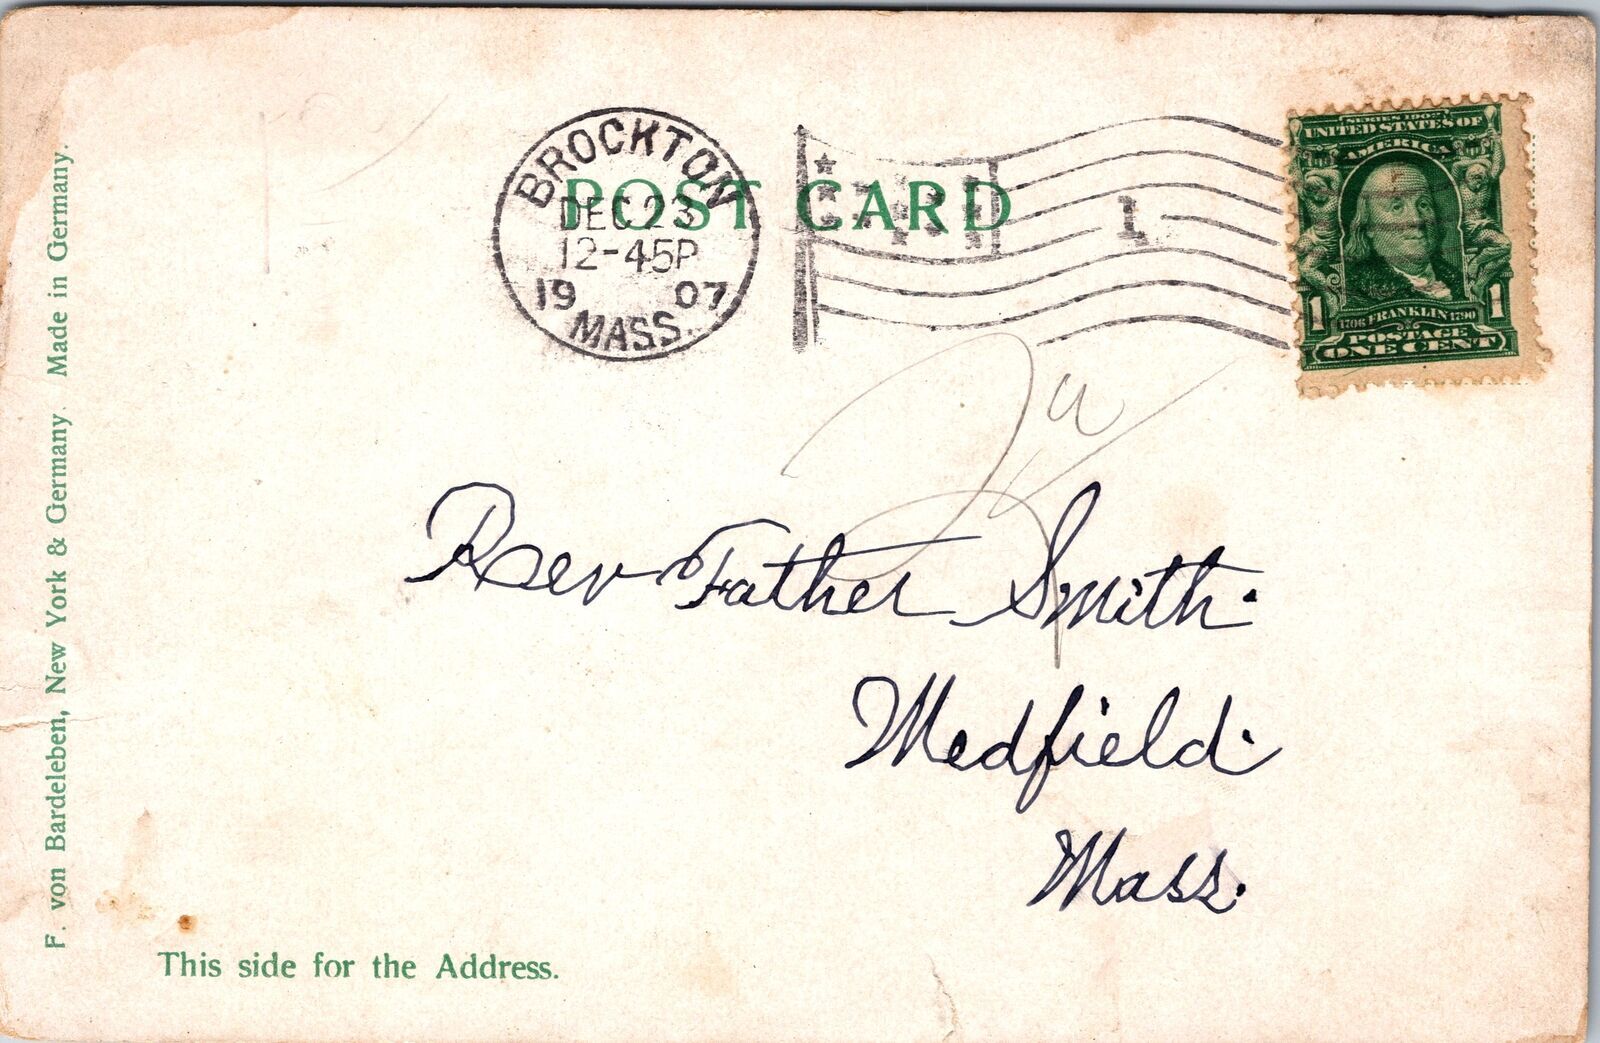 POST CARD
BROCKTON
DEC 23
12-45P
19 07
MASS.
1
SERIES 1902
UNITED STATES OF
AMERICA
1 1
1706 FRANKLIN 1790
POSTAGE
ONE CENT
Rev Father Smith.
Medfield.
Mass.
This side for the Address.
F. von Bardeleben, New York & Germany. Made in Germany.